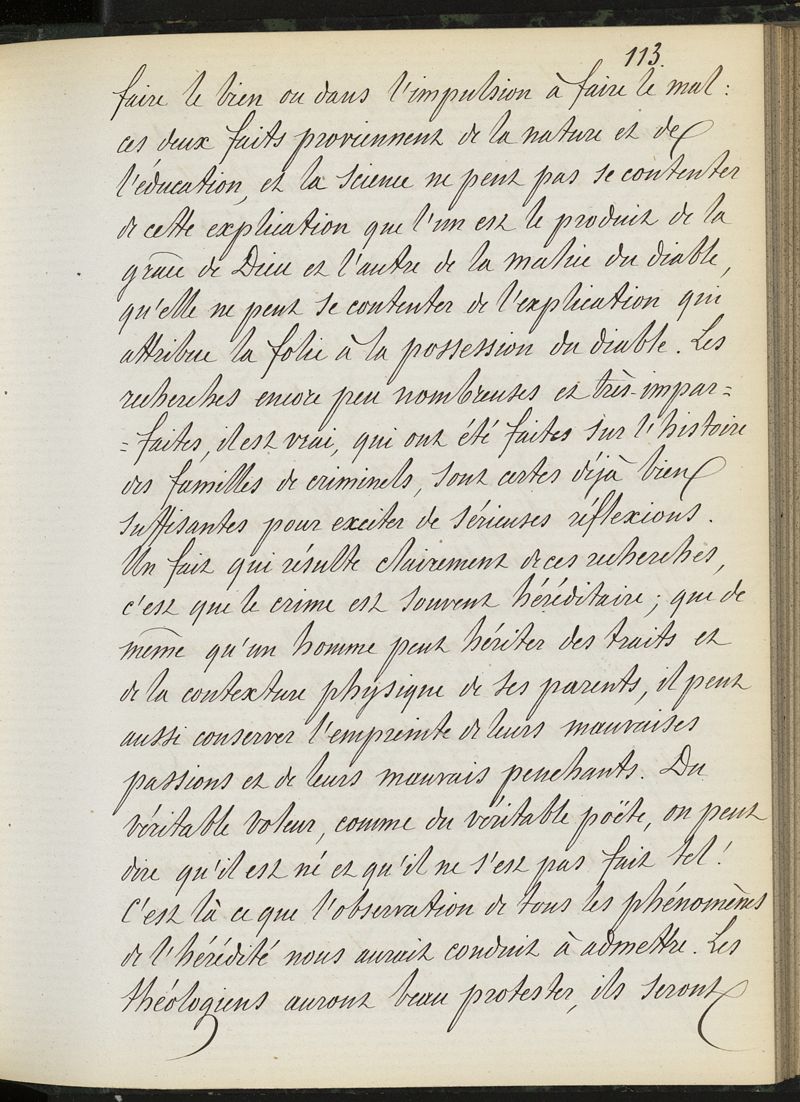 113.
faire le bien ou dans l'impulsion à faire le mal :
ces deux faits proviennent de la nature et de
l'éducation, et la science ne peut pas se contenter
de cette explication que l'un est le produit de la
grâce de Dieu et l'autre de la malice du diable,
qu'elle ne peut se contenter de l'explication qui
attribue la folie à la possession du diable. Les
recherches encore peu nombreuses et très-impar=
=faites, il est vrai, qui ont été faites sur l'histoire
des familles de criminels, sont certes déjà bien
suffisantes pour exciter de sérieuses réflexions.
Un fait qui résulte clairement de ces recherches,
c'est que le crime est souvent héréditaire ; que de
même qu'un homme peut hériter des traits et
de la contexture physique de ses parents, il peut
aussi conserver l'empreinte de leurs mauvaises
passions et de leurs mauvais penchants. Du
véritable voleur, comme du véritable poëte, on peut
dire qu'il est né et qu'il ne s'est pas fait tel !
C'est là ce que l'observation de tous les phénomènes
de l'hérédité nous aurait conduit à admettre. Les
théologiens auront beau protester, ils seront